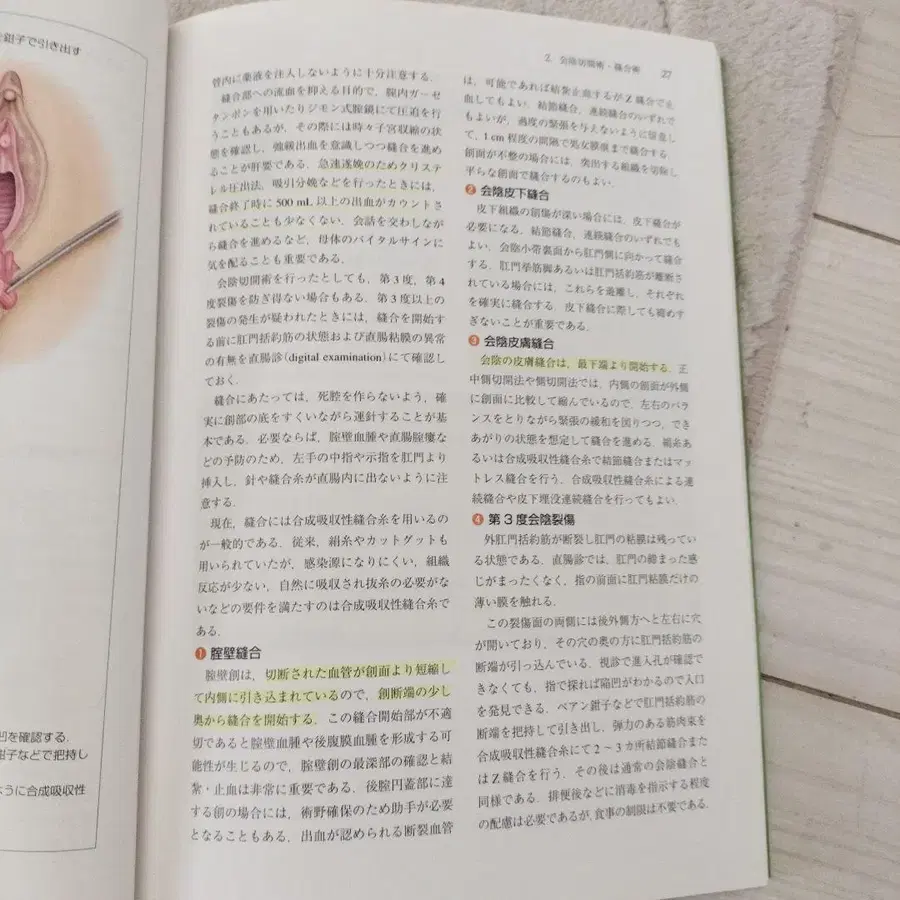 鉗子で引き出す
凹を確認する.
鉗子などで把持し
ように合成吸収性
2. 会陰切開術・縫合術 27
管内に薬液を注入しないように十分注意する.
縫合部への流血を抑える目的で, 腟内ガーゼ
タンポンを用いたりジモン式腟鏡にて圧迫を行
うこともあるが, その際には時々子宮収縮の状
態を確認し, 弛緩出血を意識しつつ縫合を進め
ることが肝要である. 急速遂娩のためクリステ
レル圧出法, 吸引分娩などを行ったときには,
縫合終了時に 500 mL 以上の出血がカウントさ
れていることも少なくない. 会話を交わしなが
ら縫合を進めるなど, 母体のバイタルサインに
気を配ることも重要である.
会陰切開術を行ったとしても, 第3度, 第4
度裂傷を防ぎ得ない場合もある. 第3度以上の
裂傷の発生が疑われたときには, 縫合を開始す
る前に肛門括約筋の状態および直腸粘膜の異常
の有無を直腸診(digital examination)にて確認し
ておく.
縫合にあたっては, 死腔を作らないよう, 確
実に創部の底をすくいながら運針することが基
本である. 必要ならば, 腟壁血腫や直腸腟瘻な
どの予防のため, 左手の中指や示指を肛門より
挿入し, 針や縫合糸が直腸内に出ないように注
意する.
現在, 縫合には合成吸収性縫合糸を用いるの
が一般的である. 従来, 絹糸やカットグットも
用いられていたが, 感染源になりにくい, 組織
反応が少ない, 自然に吸収され抜糸の必要がな
いなどの要件を満たすのは合成吸収性縫合糸で
ある.
❶ 腟壁縫合
腟壁創は, 切断された血管が創面より短縮し
て内側に引き込まれているので, 創断端の少し
奥から縫合を開始する. この縫合開始部が不適
切であると腟壁血腫や後腹膜血腫を形成する可
能性が生じるので, 腟壁創の最深部の確認と結
紮・止血は非常に重要である. 後腟円蓋部に達
する創の場合には, 術野確保のため助手が必要
となることもある. 出血が認められる断裂血管
は, 可能であれば結紮止血するがZ縫合で止
血してもよい. 結節縫合, 連続縫合のいずれで
もよいが, 過度の緊張を与えないように留意し
て, 1 cm 程度の間隔で処女膜痕まで縫合する.
創面が不整の場合には, 突出する組織を切除し
平らな創面で縫合するのもよい.
❷ 会陰皮下縫合
皮下組織の創傷が深い場合には, 皮下縫合が
必要になる. 結節縫合, 連続縫合のいずれでも
よい. 会陰小帯裏面から肛門側に向かって縫合
する. 肛門挙筋脚あるいは肛門括約筋が離断さ
れている場合には, これらを遊離し, それぞれ
を確実に縫合する. 皮下縫合に際しても締めす
ぎないことが重要である.
❸ 会陰皮膚縫合
会陰の皮膚縫合は, 最下端より開始する. 正
中側切開法や側切開法では, 内側の創面が外側
に創面に比較して縮んでいるので, 左右のバラ
ンスをとりながら緊張の緩和を図りつつ, でき
あがりの状態を想定して縫合を進める. 絹糸あ
るいは合成吸収性縫合糸で結節縫合またはマッ
トレス縫合を行う. 合成吸収性縫合糸による連
続縫合や皮下埋没連続縫合を行ってもよい.
❹ 第3度会陰裂傷
外肛門括約筋が断裂し肛門の粘膜は残ってい
る状態である. 直腸診では, 肛門の締まった感
じがまったくなく, 指の前面に肛門粘膜だけの
薄い膜を触れる.
この裂傷面の両側には後外側方へと左右に穴
が開いており, その穴の奥の方に肛門括約筋の
断端が引っ込んでいる. 視診で進入孔が確認で
きなくても, 指で探れば陥凹がわかるので入口
を発見できる. ペアン鉗子などで肛門括約筋の
断端を把持して引き出し, 弾力のある筋肉束を
合成吸収性縫合糸にて2～3カ所結節縫合また
はZ縫合を行う. その後は通常の会陰縫合と
同様である. 排便後などに消毒を指示する程度
の配慮は必要であるが, 食事の制限は不要である.